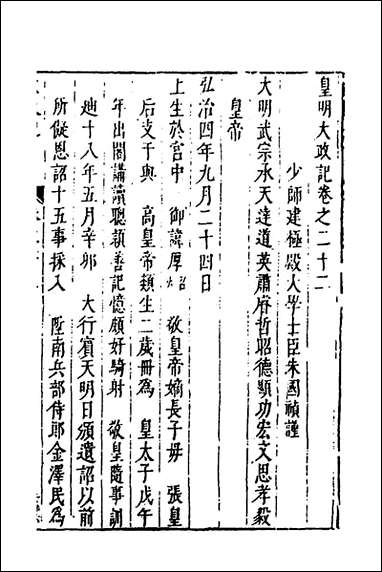 皇明大政記卷之二十二
少師建極殿大學士臣朱國禎謹
大明武宗承天達道英肅睿哲昭德顯功宏文思孝毅
皇帝
弘治四年九月二十四日
上生於宮中 御諱厚炤 敬皇帝嫡長子母 張皇
后支干與 高皇帝類生二歲冊為 皇太子戊午
年出閣講讀聰穎善記憶頗好騎射 敬皇隨事訓
廸十八年五月辛卯 大行賓天明日頒遺詔以前
所儗恩詔十五事採入 陞南兵部侍郎金澤民為